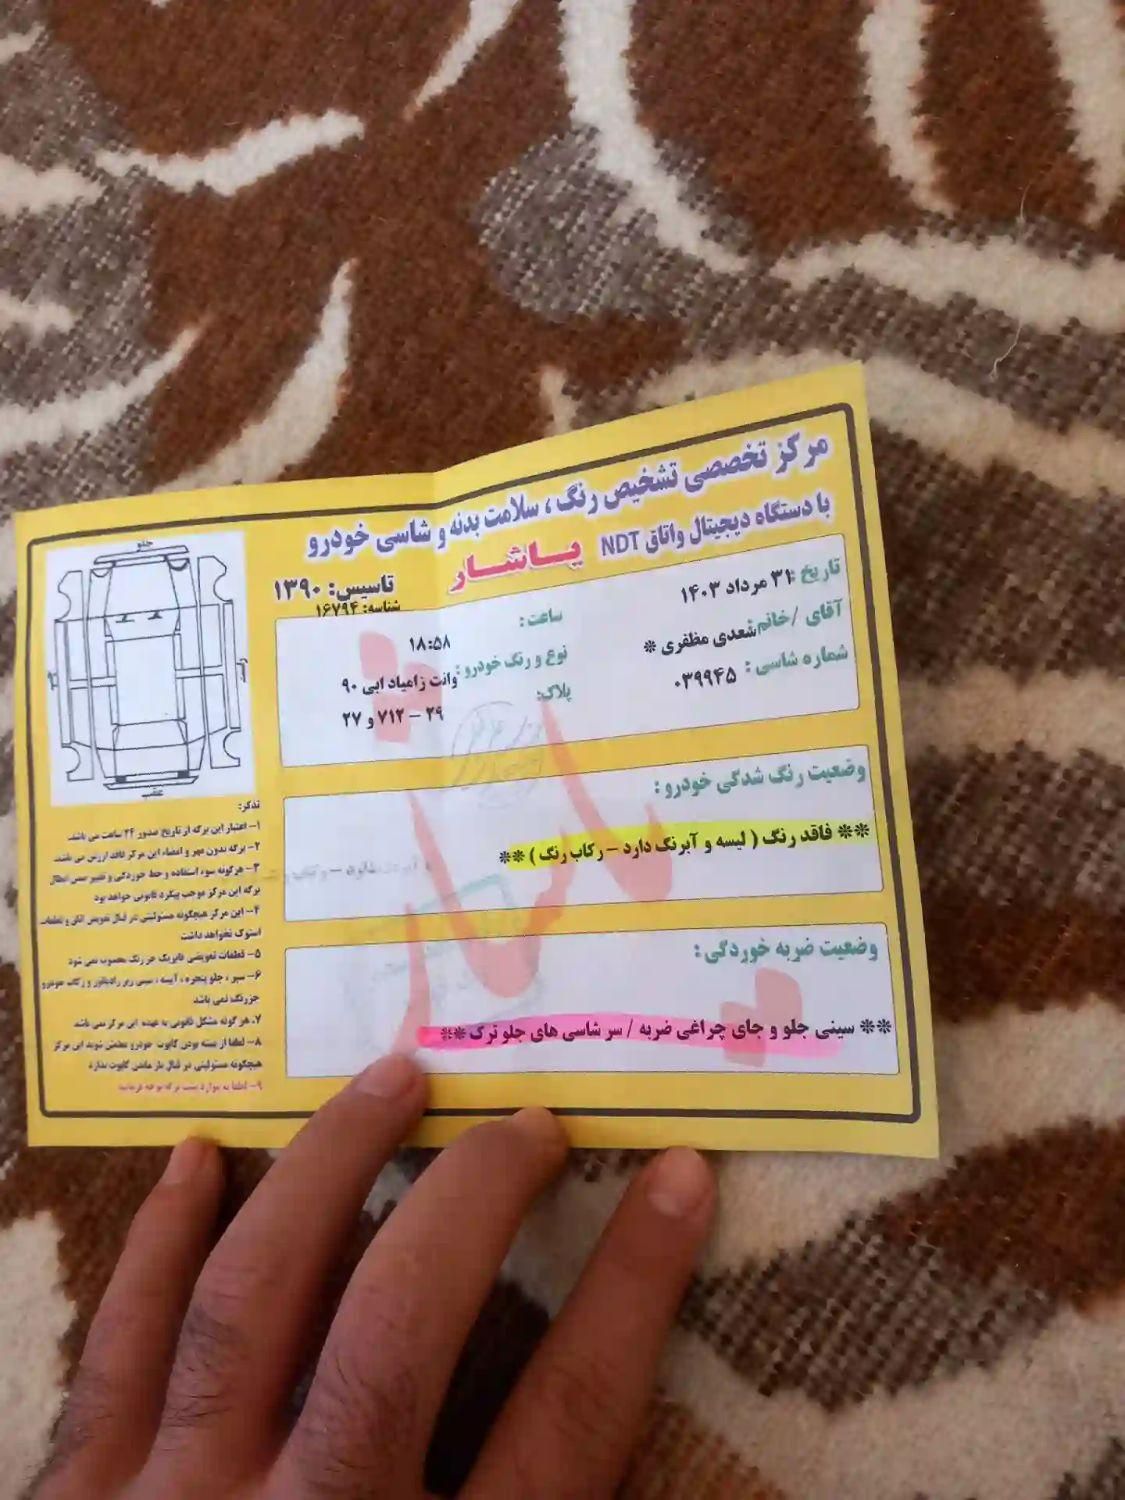 مرکز تخصصی تشخیص رنگ ، سلامت بدنه و شاسی خودرو
با دستگاه دیجیتال واتاق NDT یاشار
تاسیس: ۱۳۹۰
شناسه: ۱۶۷۹۴
تاریخ : ۳۱ مرداد ۱۴۰۳
ساعت : ۱۸:۵۸
آقای / خانم: شعدی مظفری *
نوع و رنگ خودرو: وانت زامیاد ابی ۹۰
شماره شاسی : ۰۳۹۹۴۵
پلاک: ۲۹ – ۷۱۲ و ۲۷
وضعیت رنگ شدگی خودرو :
** فاقد رنگ ( لیسه و آبرنگ دارد – رکاب رنگ ) **
وضعیت ضربه خوردگی :
** سینی جلو و جای چراغی ضربه / سر شاسی های جلو ترک **
جلو
عقب
تذکر:
۱– اعتبار این برگه از تاریخ صدور ۲۴ ساعت می باشد.
۲– برگه بدون مهر و امضاء این مرکز فاقد ارزش می باشد.
۳– هرگونه سوء استفاده و خط خوردگی و تغییر ضمن ابطال
برگه این مرکز موجب پیگرد قانونی خواهد بود
۴– این مرکز هیچگونه مسئولیتی در قبال تعویض اتاق و قطعات
استوک نخواهد داشت
۵– قطعات تعویضی فابریک جز رنگ محسوب نمی شود
۶– سپر ، جلو پنجره ، آیینه ، سینی زیر رادیاتور و رکاب خودرو
جزرنگ نمی باشد
۷. هر گونه مشکل قانونی به عهده این مرکز نمی باشد
۸– لطفا از بسته بودن کاپوت خودرو مطمئن شوید این مرکز
هیچگونه مسئولیتی در قبال باز ماندن کاپوت ندارد
۹– لطفا به موارد پشت برگه توجه فرمایید